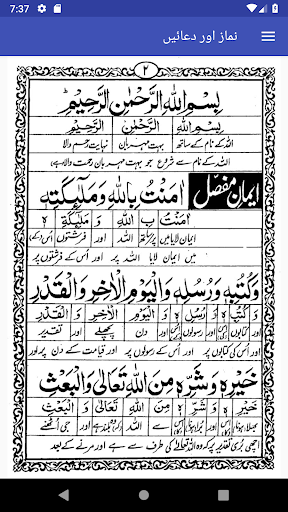 7:37
نماز اور دعائیں
۲
بِسْمِ اللهِ الرَّحْمٰنِ الرَّحِيْمِ
بِسْمِ اللهِ الرَّحْمٰنِ الرَّحِيْمِ
اللہ کے نام کے ساتھ بہت مہربان نہایت رحم والا
اللہ کے نام سے شروع جو بہت مہربان رحمت والا ہے
ایمان مفصل
اٰمَنْتُ بِاللهِ وَمَلٰٓئِكَتِهٖ
اٰمَنْتُ بِ اللهِ وَ مَلٰٓئِكَتِهٖ
ایمان لایا میں ساتھ اللہ اور فرشتوں اس کے
میں ایمان لایا اللہ پر اور اُس کے فرشتوں پر
وَكُتُبِهٖ وَرُسُلِهٖ وَالْيَوْمِ الْاٰخِرِ وَالْقَدْرِ
وَ كُتُبِ هٖ وَ رُسُلِ هٖ وَ الْيَوْمِ الْاٰخِرِ وَ الْقَدْرِ
اور کتابوں اور رسولوں اور دن پچھلے اور تقدیر
اور اُس کی کتابوں پر اور اُس کے رسولوں پر اور قیامت کے دن پر اور
خَيْرِهٖ وَشَرِّهٖ مِنَ اللهِ تَعَالٰى وَالْبَعْثِ
خَيْرِ هٖ وَ شَرِّ هٖ مِنَ اللهِ تَعَالٰى وَ الْبَعْثِ
اور اللہ اور جی اُٹھنے
اچھی بُری تقدیر کہ وہ اللہ تعالےٰ کی طرف سے ہے اور مرنے کے بعد